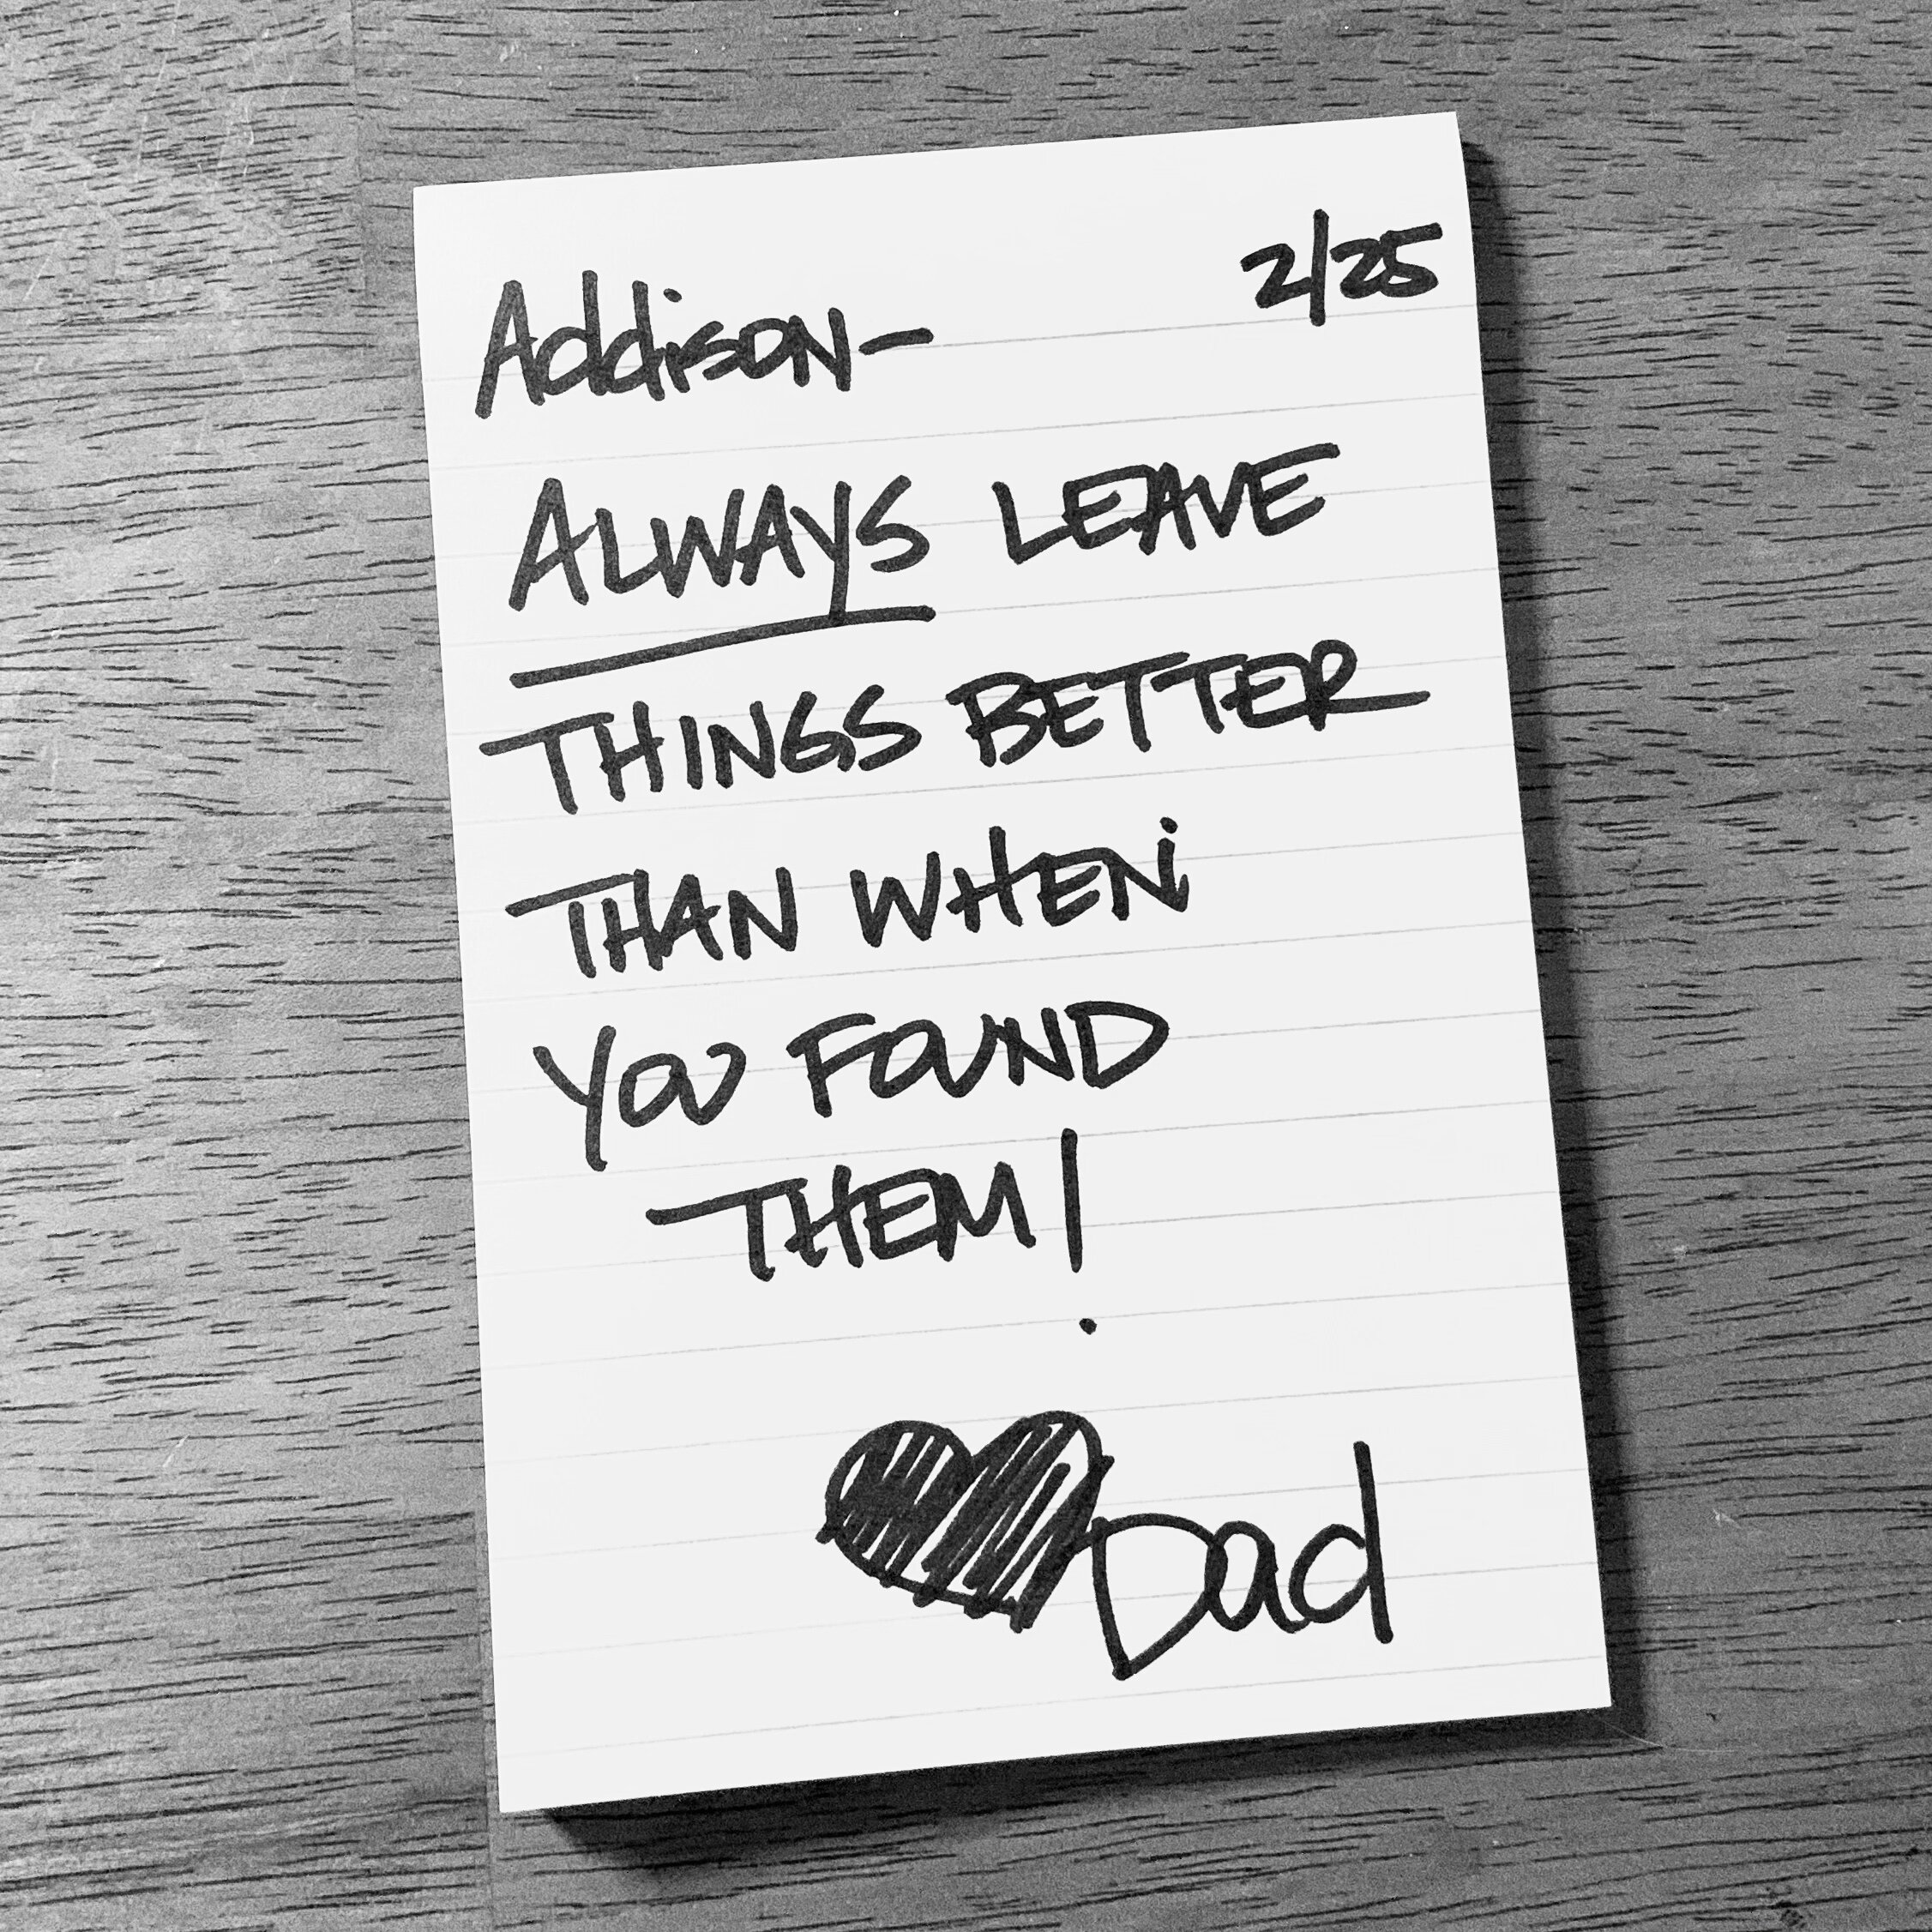 2/25
Addison-
ALWAYS LEAVE
THINGS BETTER
THAN WHEN
YOU FOUND
THEM!
Dad